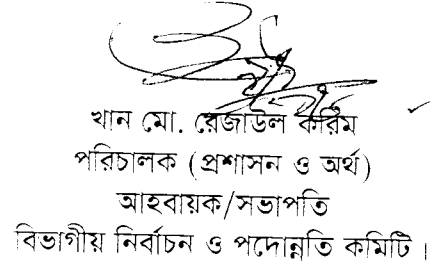 খান মো. রেজাউল করিম
পরিচালক (প্রশাসন ও অর্থ)
আহবায়ক/সভাপতি
বিভাগীয় নির্বাচন ও পদোন্নতি কমিটি।